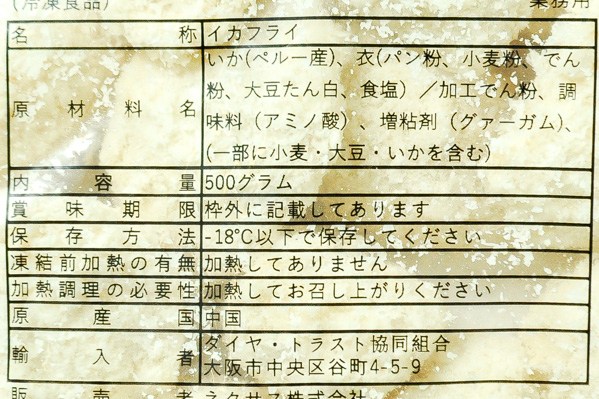 (冷凍食品) 業務用
名称 イカフライ
原材料名 いか(ペルー産)、衣(パン粉、小麦粉、でん
粉、大豆たん白、食塩)/加工でん粉、調
味料(アミノ酸)、増粘剤(グァーガム)、
(一部に小麦・大豆・いかを含む)
内容量 500グラム
賞味期限 枠外に記載してあります
保存方法 -18℃以下で保存してください
凍結前加熱の有無 加熱してありません
加熱調理の必要性 加熱してお召し上がりください
原産国 中国
輸入者 ダイヤ・トラスト協同組合
大阪市中央区谷町4-5-9
販売者 ネクサス株式会社